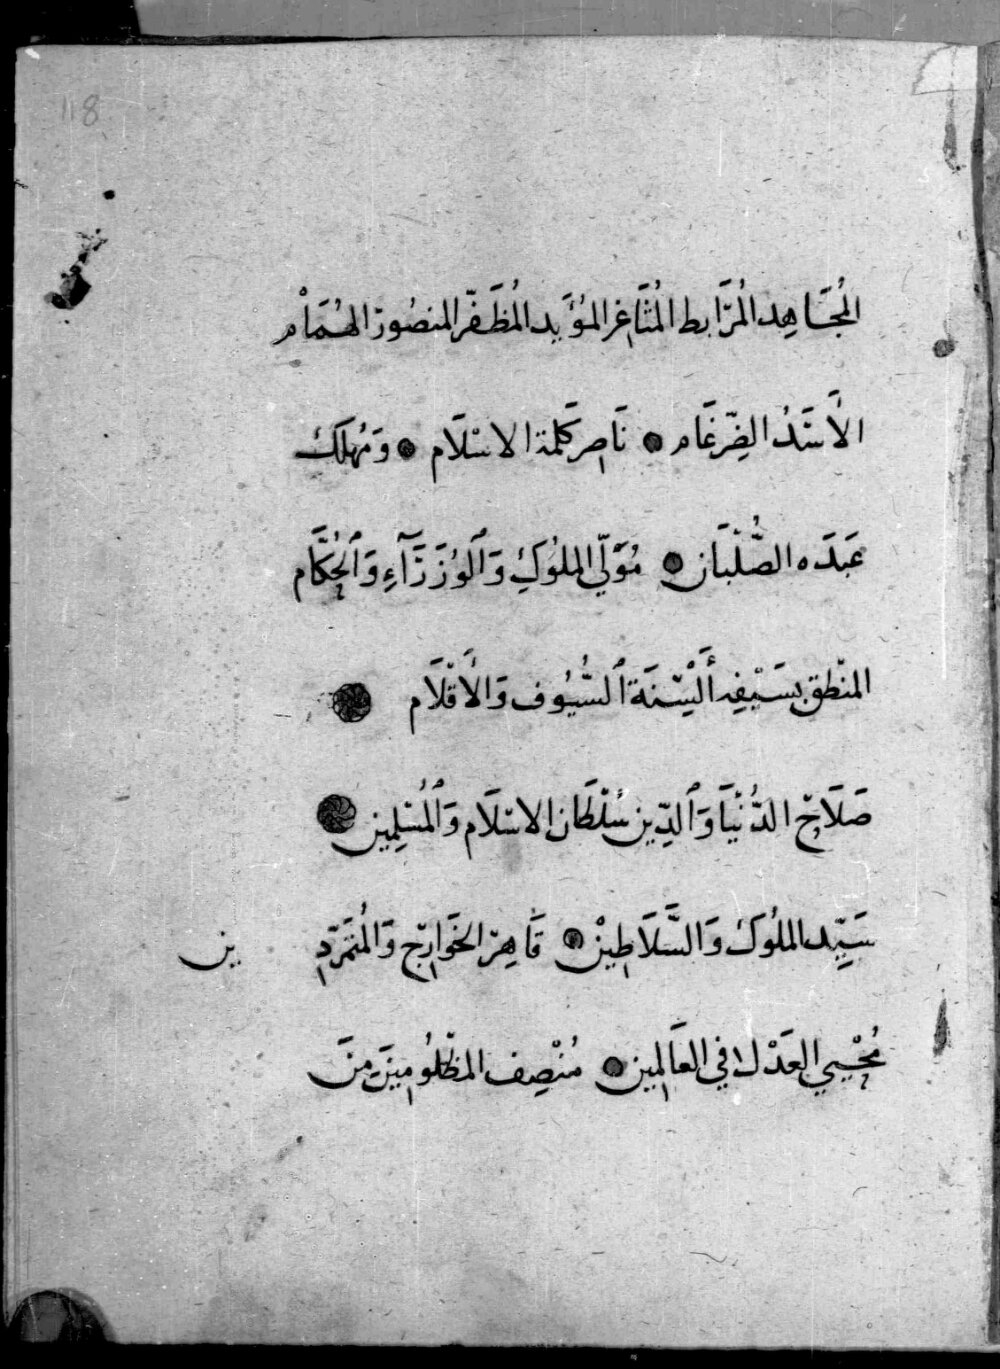 118
المُجَاهِد المُرَابط المُثَاغِر المُؤَيَد المُظَفّر المنصُور الهُمَامْ
الأَسَدُ الضِّرغَام ● نَاصِر كَلمة الاسْلَام ● وَمُهلكَ
عَبَدَه الصُّلْبَان ● مُوَلّي الملُوكِ وَٱلوُزَرَآءِ وَٱلحُكَّام
المنْطق بسَيْفِه أَلْسِنَة ٱلسُّيُوف وَالأَقْلَام
صَلَاح الدُّنْيَا وَٱلدِّين سُلْطَان الاسْلَام وَٱلمُسْلِمِين
سَيِّد الملُوك وَالسَّلَاطِينْ ● قَاهِر الخَوَارِج وَالمُتَمَرِّدِ ين
مُحْيِي العَدْل في العَالَمِين ● مُنْصِف المظْلُومِينَ مِنَ